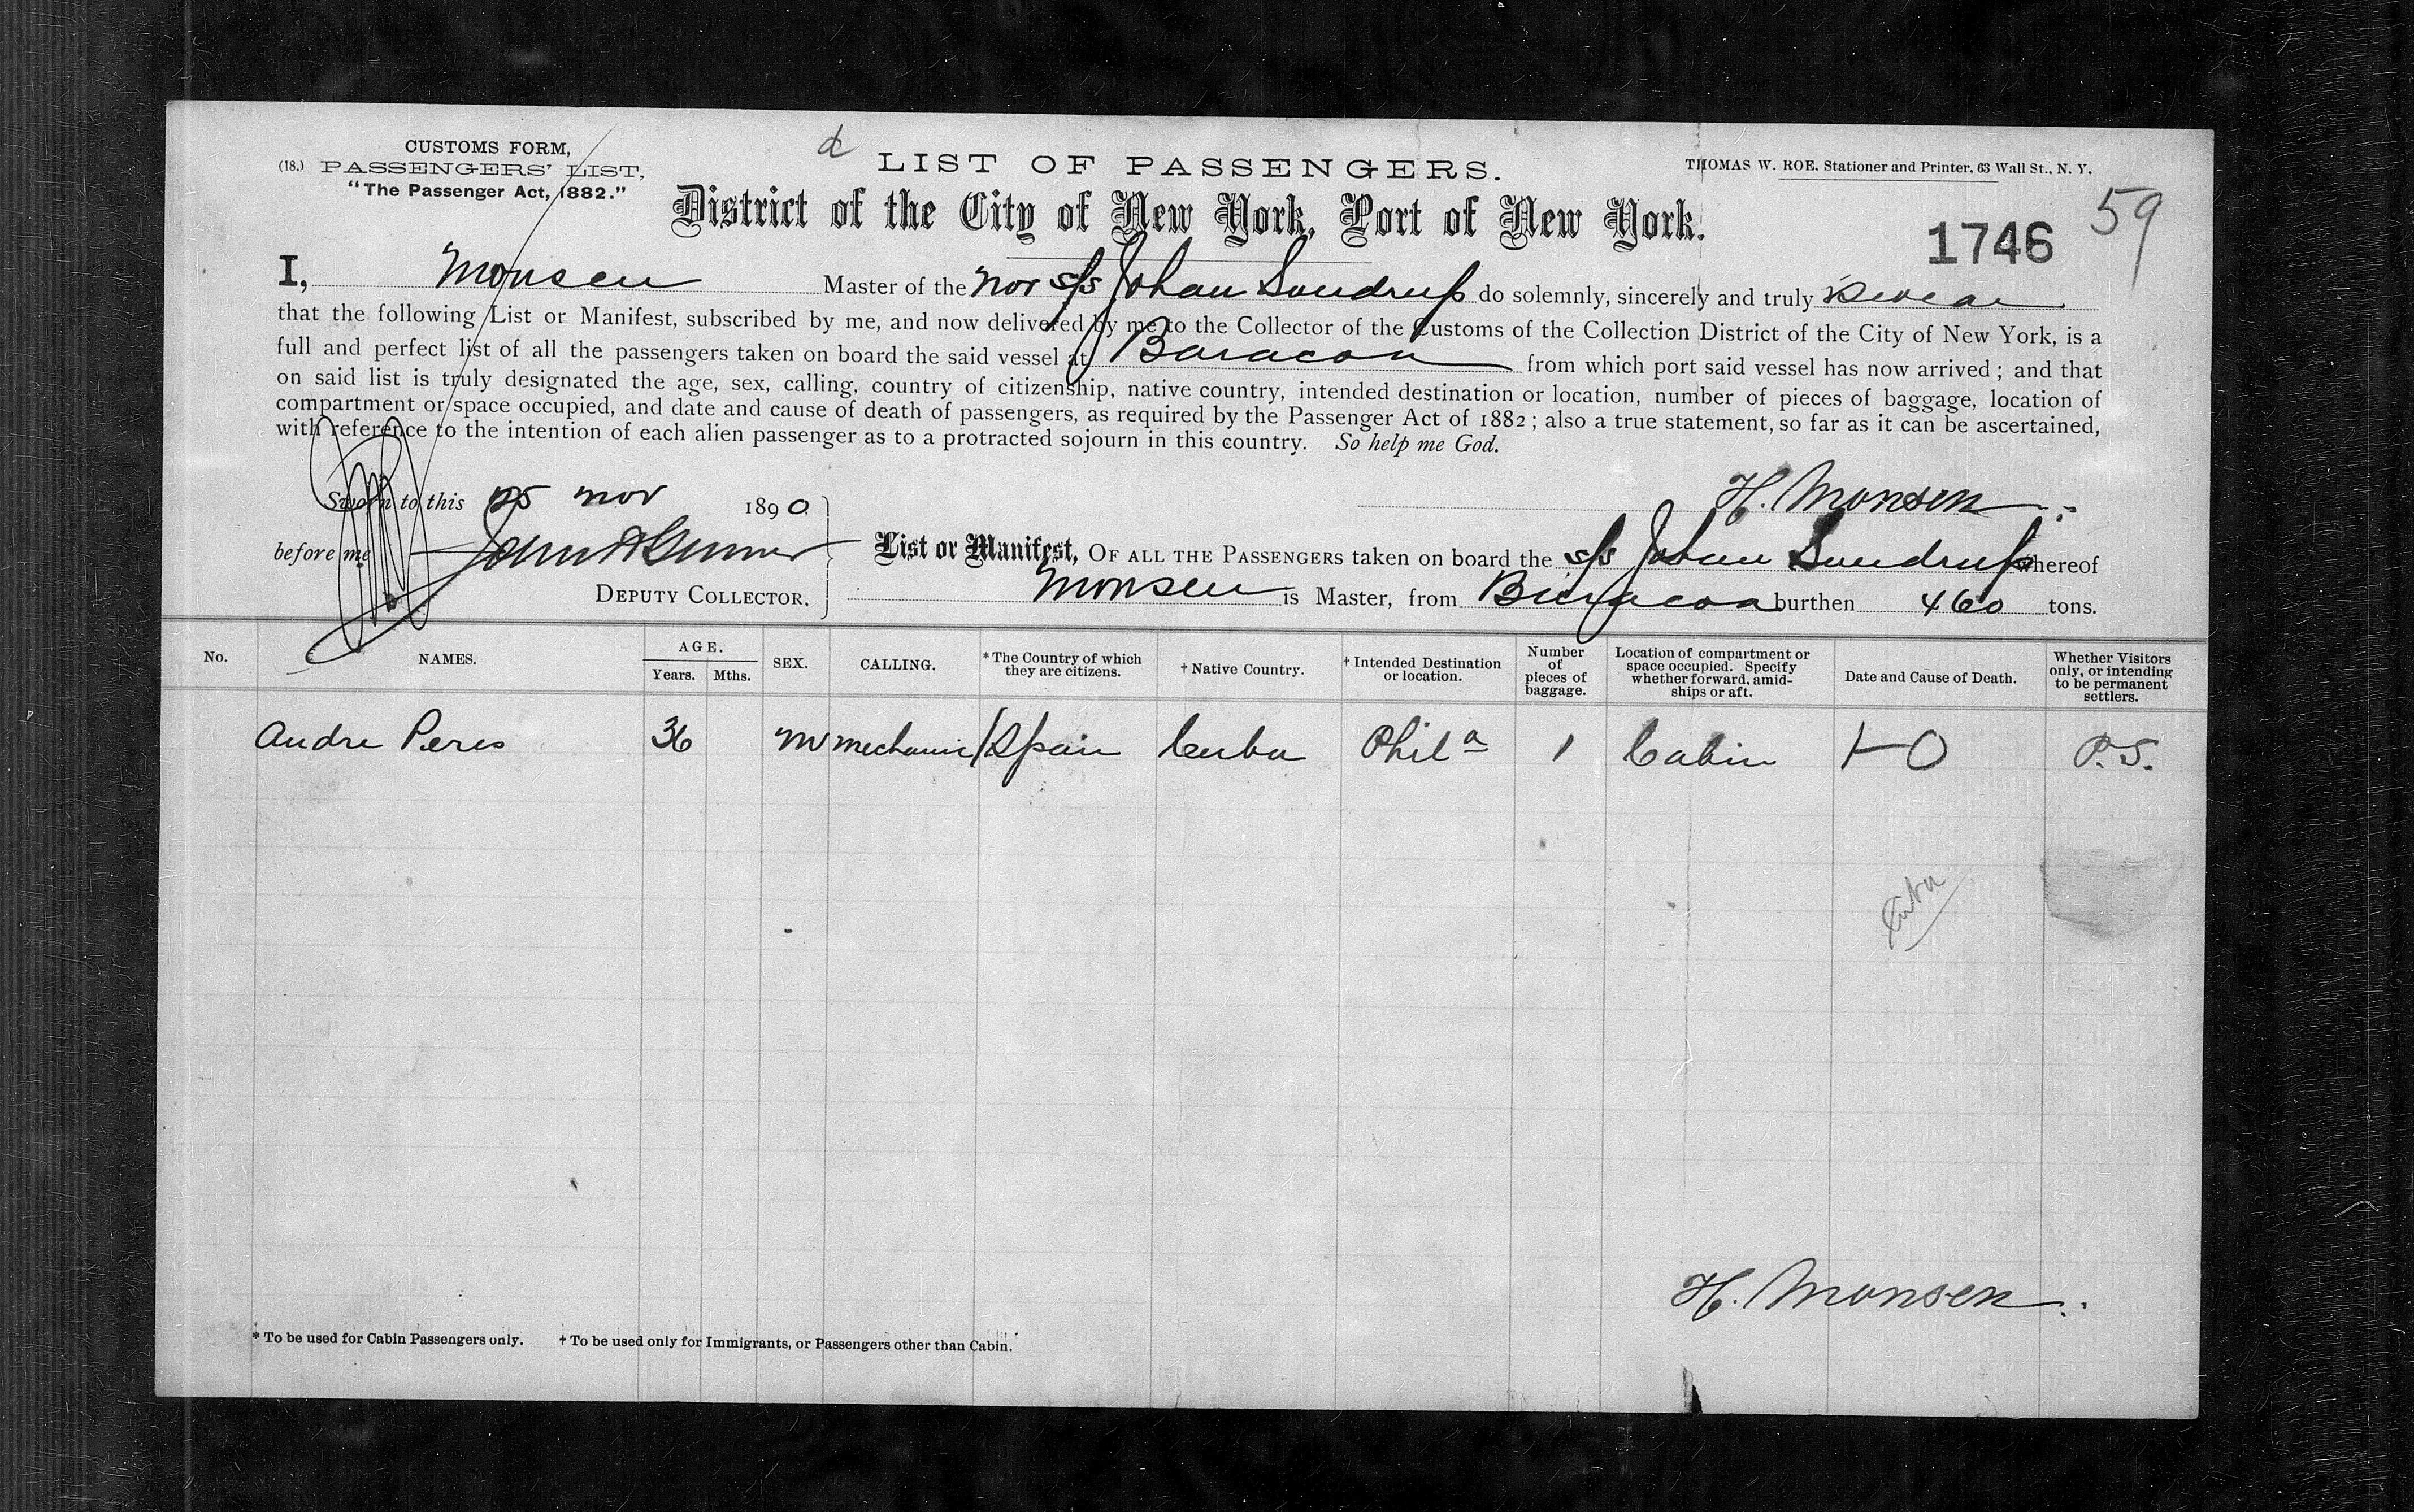 CUSTOMS FORM,
(18.) PASSENGERS' LIST,
"The Passenger Act, 1882."
LIST OF PASSENGERS.
THOMAS W. ROE, Stationer and Printer, 63 Wall St., N. Y.
District of the City of New York, Port of New York.
1746
59
I, Monsen Master of the Nor s/s Johan Sverdrup do solemnly, sincerely and truly swear
that the following List or Manifest, subscribed by me, and now delivered by me to the Collector of the Customs of the Collection District of the City of New York, is a
full and perfect list of all the passengers taken on board the said vessel at Baracoa from which port said vessel has now arrived ; and that
on said list is truly designated the age, sex, calling, country of citizenship, native country, intended destination or location, number of pieces of baggage, location of
compartment or space occupied, and date and cause of death of passengers, as required by the Passenger Act of 1882 ; also a true statement, so far as it can be ascertained,
with reference to the intention of each alien passenger as to a protracted sojourn in this country. So help me God.
H. Monsen
Sworn to this 25 Nov 1890
before me
DEPUTY COLLECTOR.
List or Manifest, OF ALL THE PASSENGERS taken on board the s/s Johan Sverdrup whereof
Monsen is Master, from Baracoa burthen 460 tons.
No. NAMES. AGE. Years. Mths. SEX. CALLING. * The Country of which they are citizens. † Native Country. † Intended Destination or location. Number of pieces of baggage. Location of compartment or space occupied. Specify whether forward, amidships or aft. Date and Cause of Death. Whether Visitors only, or intending to be permanent settlers.
Andre Peres 36 M mechanic Spain Cuba Phila 1 Cabin P.S.
Cuba
H. Monsen
* To be used for Cabin Passengers only. † To be used only for Immigrants, or Passengers other than Cabin.